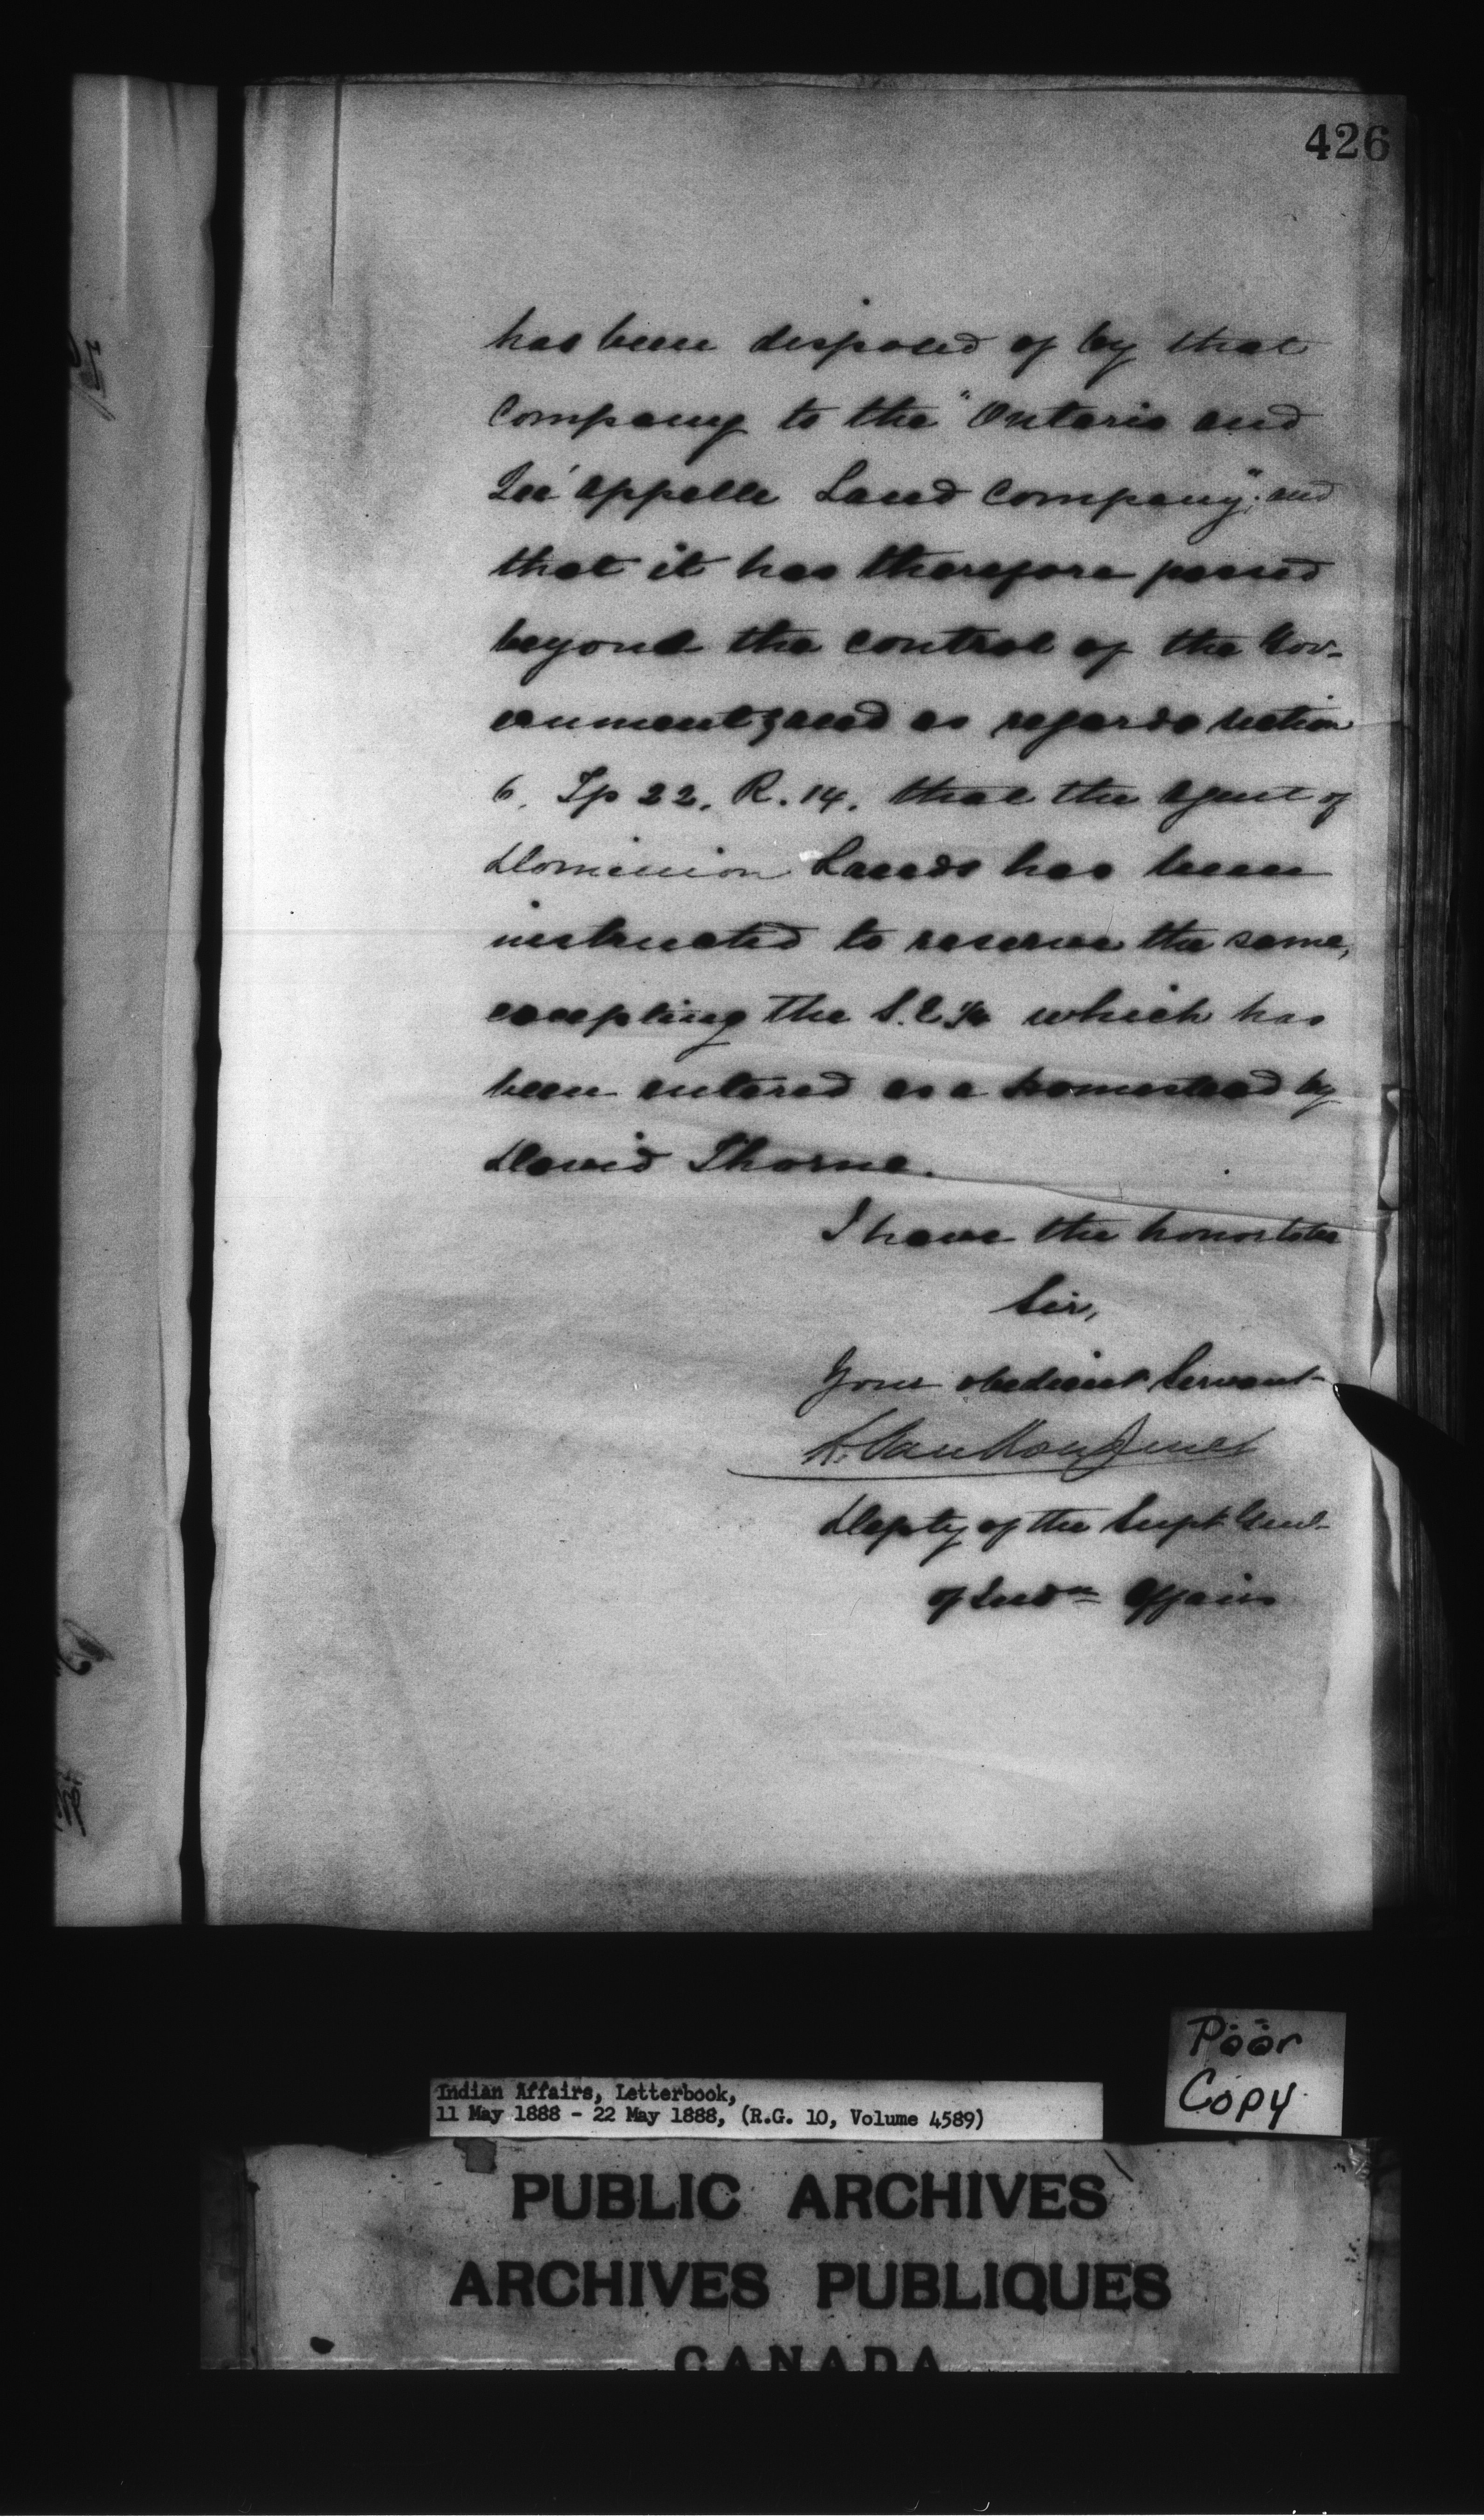 426
has been disposed of by that
Company to the "Ontario and
Qu'Appelle Land Company"; and
that it has therefore passed
beyond the control of the Gov-
ernment; and as regards section
6. Tp 22. R. 14. that the Agent of
Dominion Lands has been
instructed to reserve the same,
excepting the S.E. 1/4 which has
been entered as a homestead by
David Thorne.
I have the honor to be
Sir,
Your obedient Servant
L. VanKoughnet
Depty of the Supt. Genl.
of Indn Affairs
Poor
Copy
Indian Affairs, Letterbook,
11 May 1888 - 22 May 1888, (R.G. 10, Volume 4589)
PUBLIC ARCHIVES
ARCHIVES PUBLIQUES
CANADA